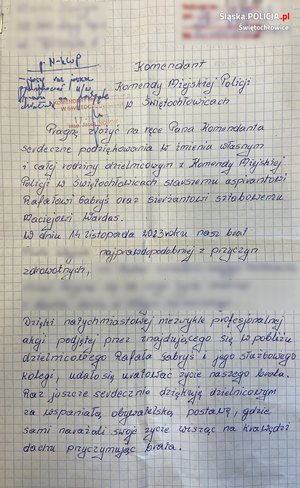 Śląska.POLICJA.pl
Świętochłowice
p. N-k WP
Komendant
Komendy Miejskiej Policji
w Świętochłowicach
Pragnę złożyć na ręce Pana Komendanta
serdeczne podziękowania w imieniu własnym
i całej rodziny dzielnicowym z Komendy Miejskiej
Policji w Świętochłowicach starszemu aspirantowi
Rafałowi Gabryś oraz sierżantowi sztabowemu
Maciejowi Wardas.
W dniu 14 listopada 2023 roku nasz brat
najprawdopodobniej z przyczyn
zdrowotnych,
Dzięki natychmiastowej niezwykle profesjonalnej
akcji podjętej przez znajdującego się w pobliżu
dzielnicowego Rafała Gabryś i jego służbowego
kolegi, udało się uratować życie naszego brata.
Raz jeszcze serdecznie dziękuję dzielnicowym
za wspaniałą obywatelską postawę, gdzie
sami narażali swoje życie wisząc na krawędzi
dachu przytrzymując brata.